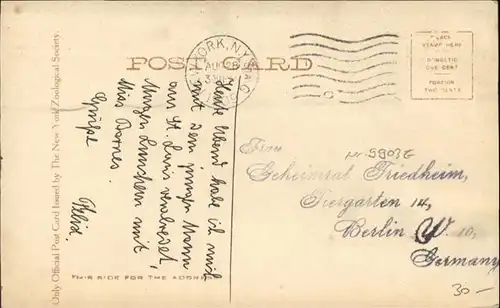 POST CARD
NEW YORK, N.Y.
AUG 28
3 PM
PLACE
STAMP HERE
DOMESTIC
ONE CENT
FOREIGN
TWO CENTS
Only Official Post Card Issued by The New York Zoological Society.
Heute Abend habe ich mich
mit dem jungen Mann
aus St. Louis verabredet,
Morgen Lunchern mit
Miss Barnes.
Grüße
Felix.
THIS SIDE FOR THE ADDRESS
Nr 5903 G
Frau
Geheimrat Friedheim,
Tiergarten 14,
Berlin W. 10,
Germany
30-